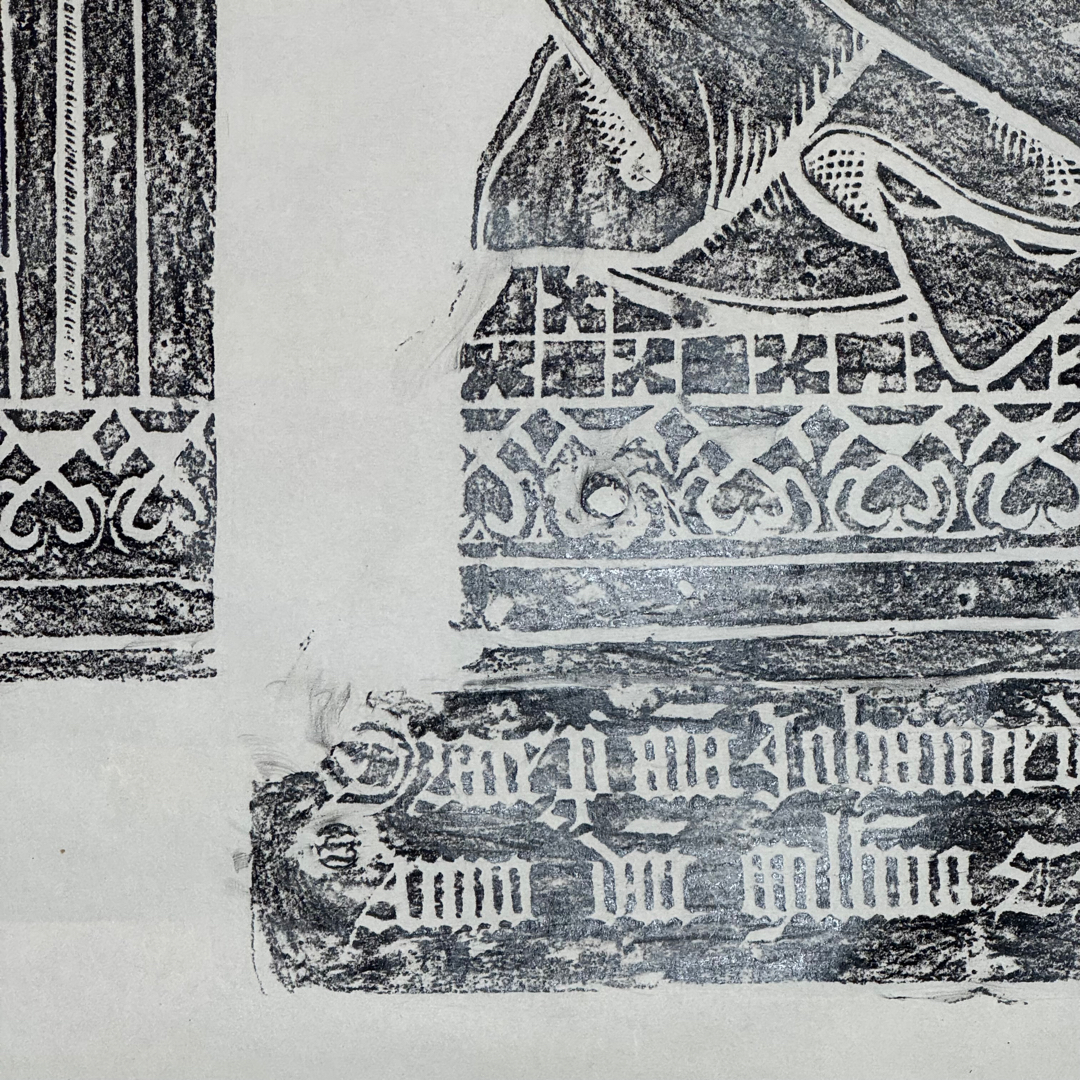 Orate p aīa Johannes
Anno dn̄i mill̄mo